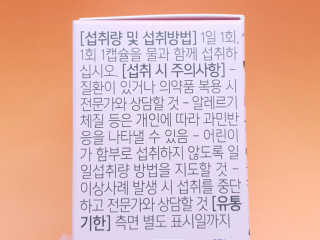 [섭취량 및 섭취방법] 1일 1회,
1회 1캡슐을 물과 함께 섭취하
십시오. [섭취 시 주의사항] -
질환이 있거나 의약품 복용 시
전문가와 상담할 것 - 알레르기
체질 등은 개인에 따라 과민반
응을 나타낼 수 있음 - 어린이
가 함부로 섭취하지 않도록 일
일섭취량 방법을 지도할 것 -
이상사례 발생 시 섭취를 중단
하고 전문가와 상담할 것 [유통
기한] 측면 별도 표시일까지